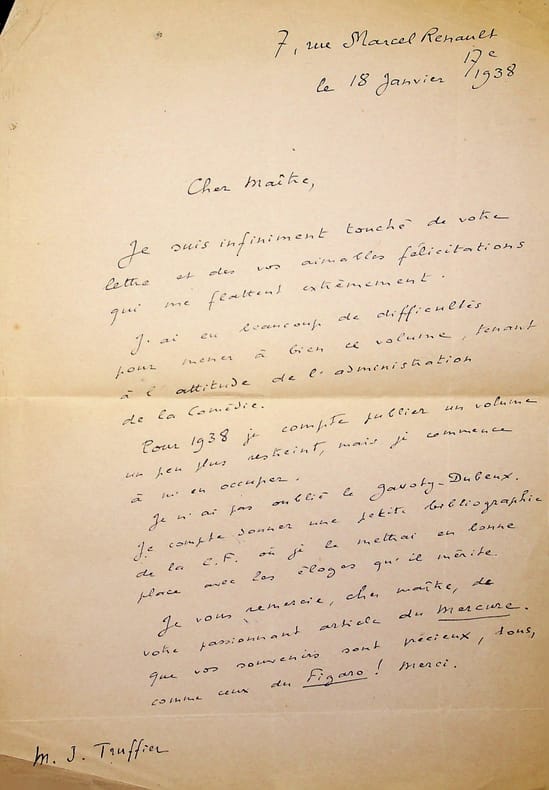 7, rue Marcel Renault
17e
le 18 Janvier 1938
Cher Maître,
Je suis infiniment touché de votre
lettre et des vos aimables félicitations
qui me flattent extrêmement.
J'ai eu beaucoup de difficultés
pour mener à bien ce volume, tenant
à l'attitude de l'administration
de la Comédie.
Pour 1938 je compte publier un volume
un peu plus restreint, mais je commence
à m'en occuper.
Je n'ai pas oublié le Gavoty-Dubeux.
Je compte donner une petite bibliographie
de la C.F. où je le mettrai en bonne
place avec les éloges qu'il mérite.
Je vous remercie, cher maître, de
votre passionnant article du Mercure.
que vos souvenirs sont précieux, tous,
comme ceux du Figaro ! Merci.
M. J. Truffier